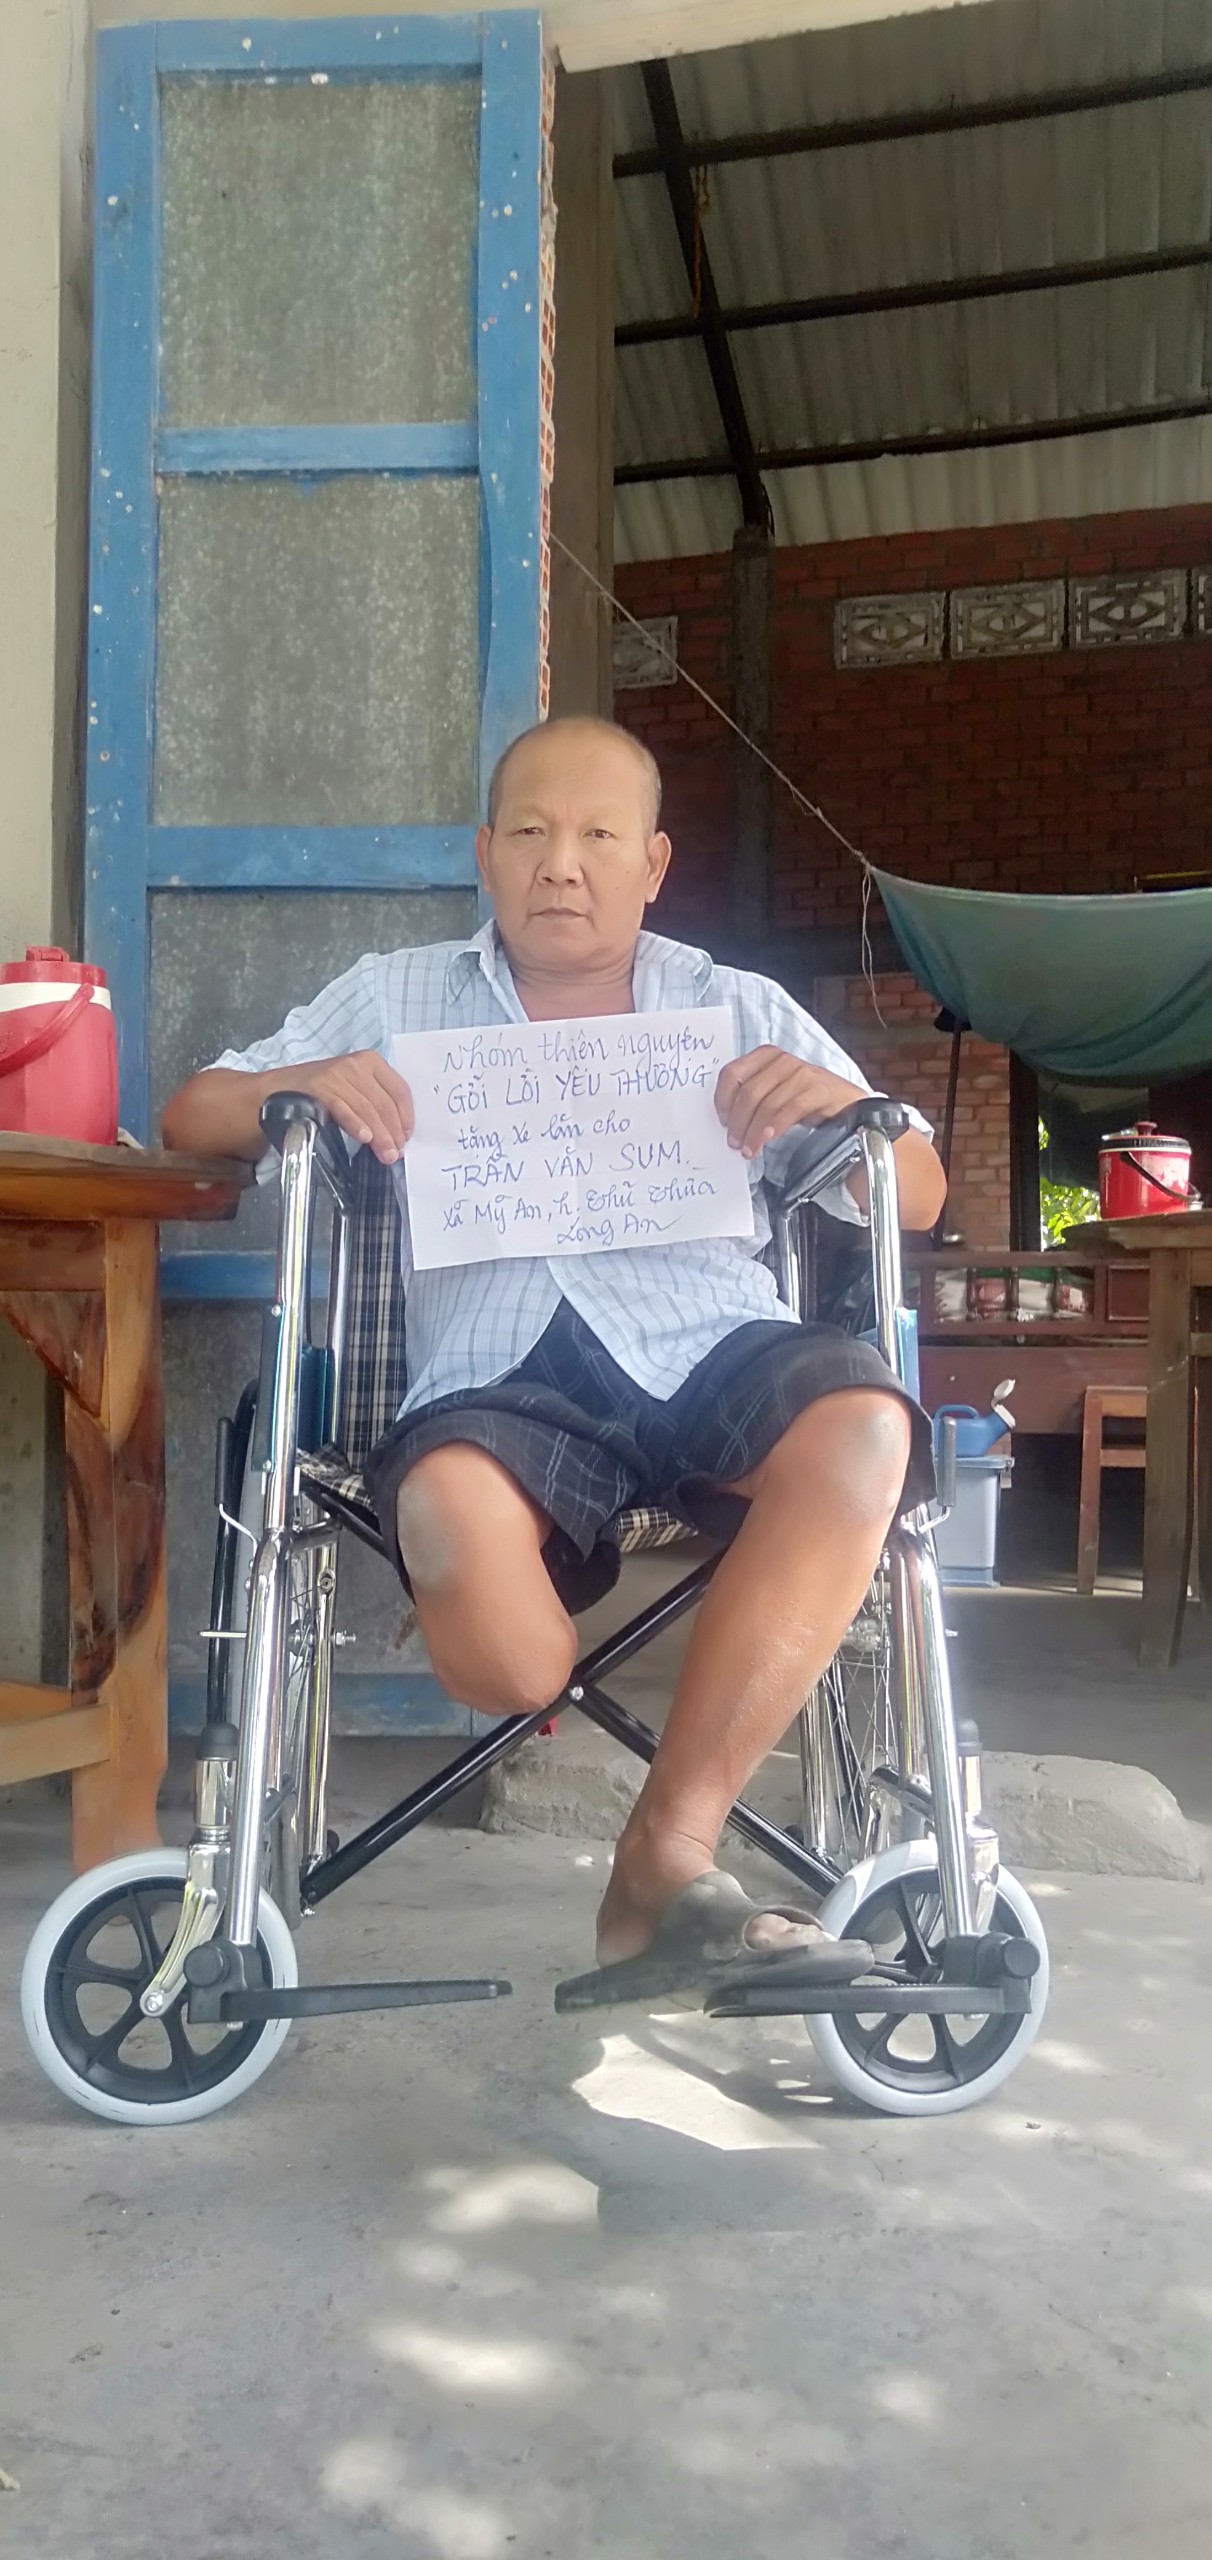 Nhóm thiện nguyện
"GỞI LỜI YÊU THƯƠNG"
tặng xe lăn cho
TRẦN VĂN SUM.
xã Mỹ An, h. Thủ Thừa
Long An